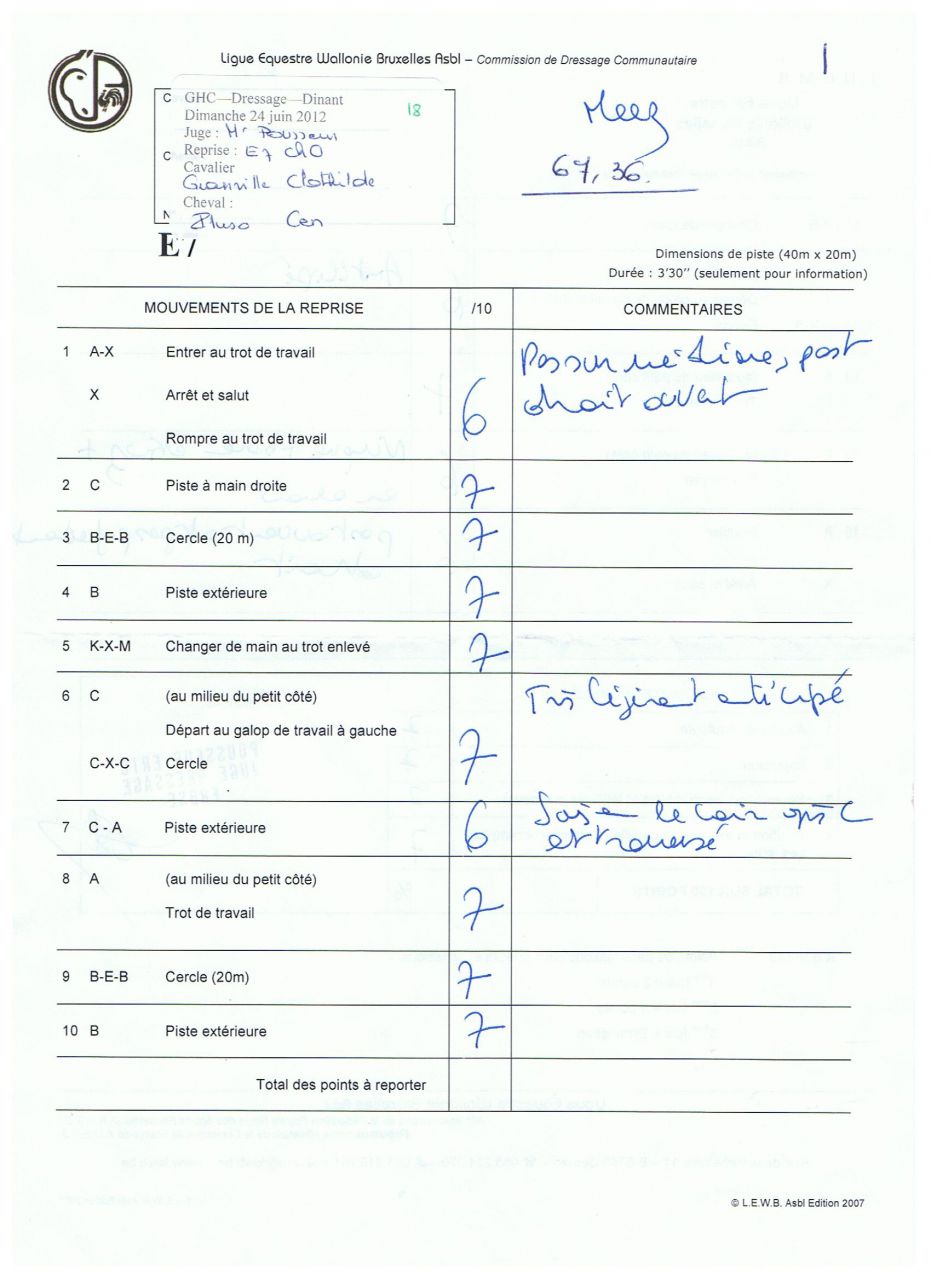 Ligue Equestre Wallonie Bruxelles Asbl – Commission de Dressage Communautaire
1
GHC—Dressage—Dinant
18
Dimanche 24 juin 2012
Juge : Mr
Reprise : E7 ChO
Cavalier
Granville Clothilde
Cheval :
67,36.
E7
Dimensions de piste (40m x 20m)
Durée : 3'30'' (seulement pour information)
MOUVEMENTS DE LA REPRISE /10 COMMENTAIRES
1 A-X Entrer au trot de travail
X Arrêt et salut 6
Rompre au trot de travail
droit avant
2 C Piste à main droite 7
3 B-E-B Cercle (20 m) 7
4 B Piste extérieure 7
5 K-X-M Changer de main au trot enlevé 7
6 C (au milieu du petit côté) Très légèrement anticipé
Départ au galop de travail à gauche
C-X-C Cercle 7
7 C - A Piste extérieure 6 le coin après C
et traversé
8 A (au milieu du petit côté)
Trot de travail 7
9 B-E-B Cercle (20m) 7
10 B Piste extérieure 7
Total des points à reporter
© L.E.W.B. Asbl Edition 2007